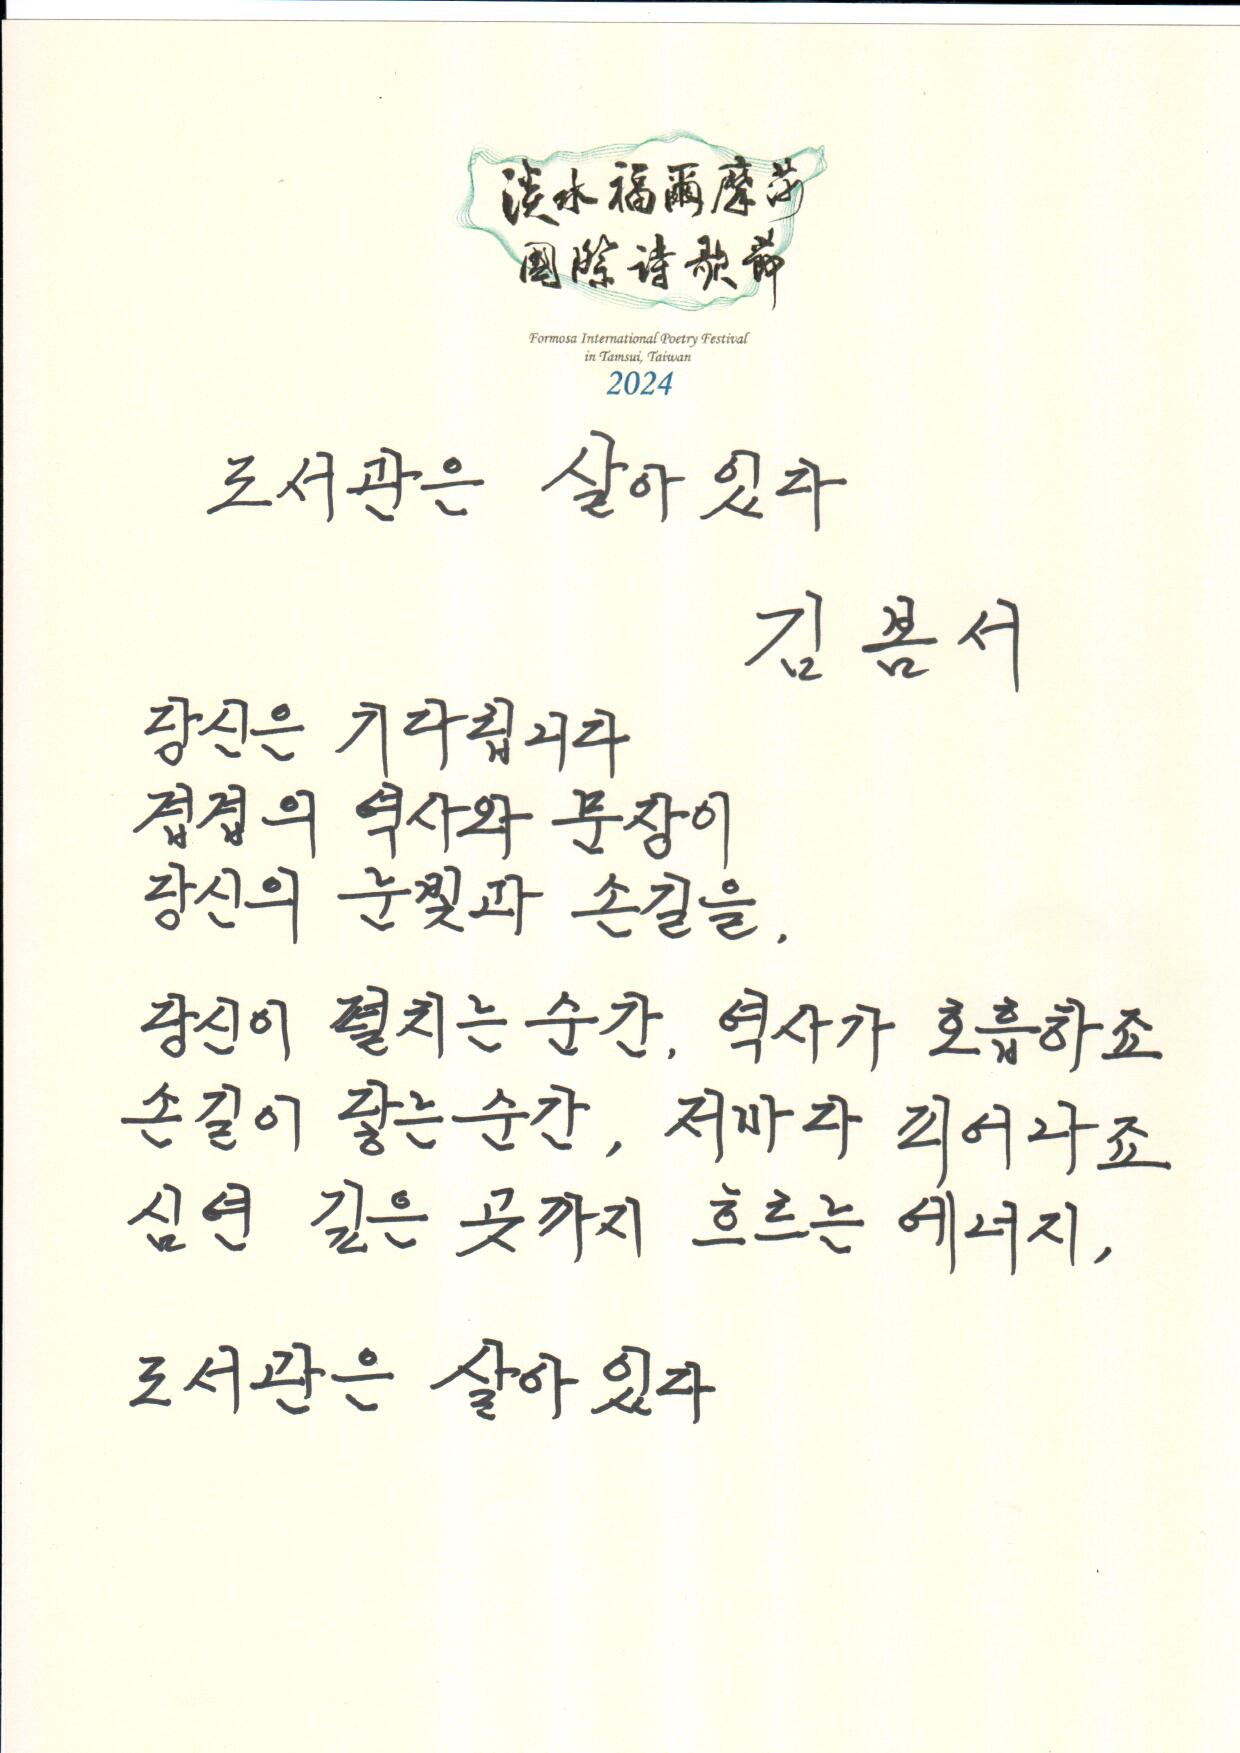 淡水福爾摩莎
國際詩歌節
Formosa International Poetry Festival
in Tamsui, Taiwan
2024
도서관은 살아있다
김봄서
당신은 기다립니다
겹겹의 역사와 문장이
당신의 눈빛과 손길을,
당신이 펼치는 순간, 역사가 호흡하죠
손길이 닿는 순간, 저마다 피어나죠
심연 깊은 곳까지 흐르는 에너지,
도서관은 살아있다